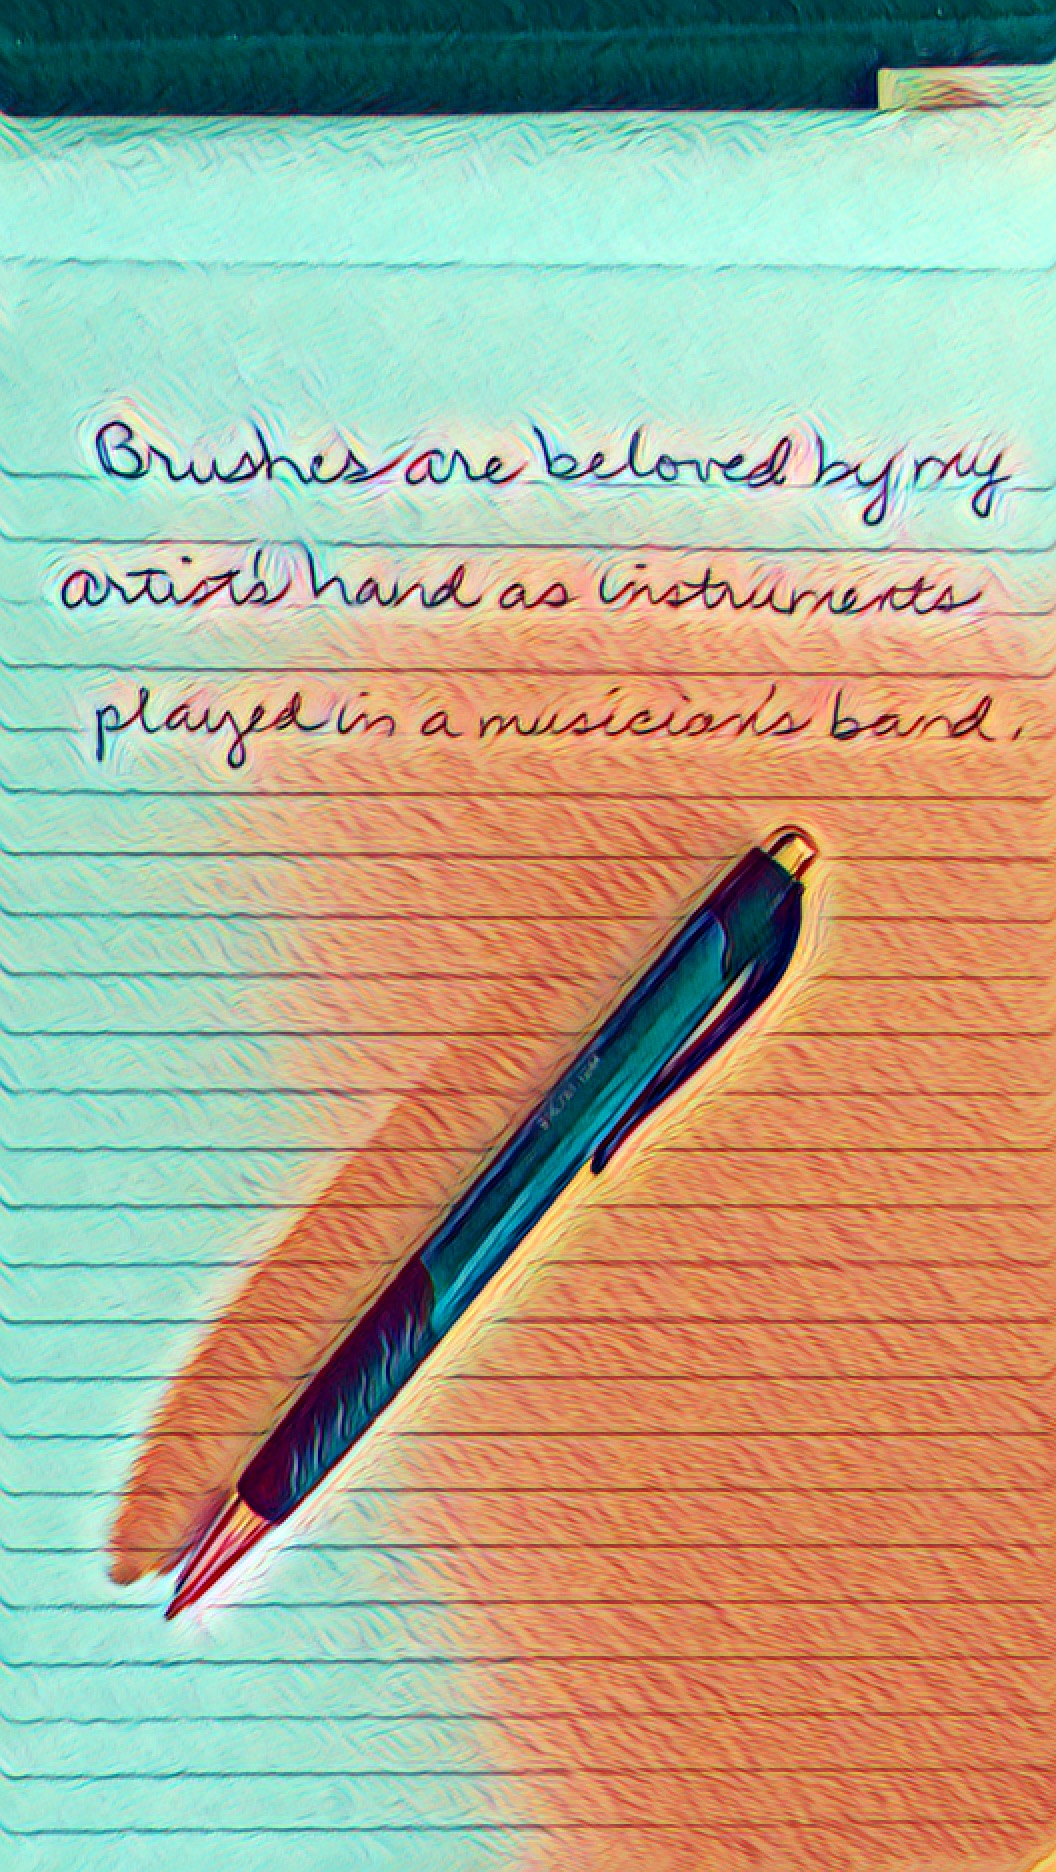 Brushes are beloved by my
artist's hand as instruments
played in a musician's band.